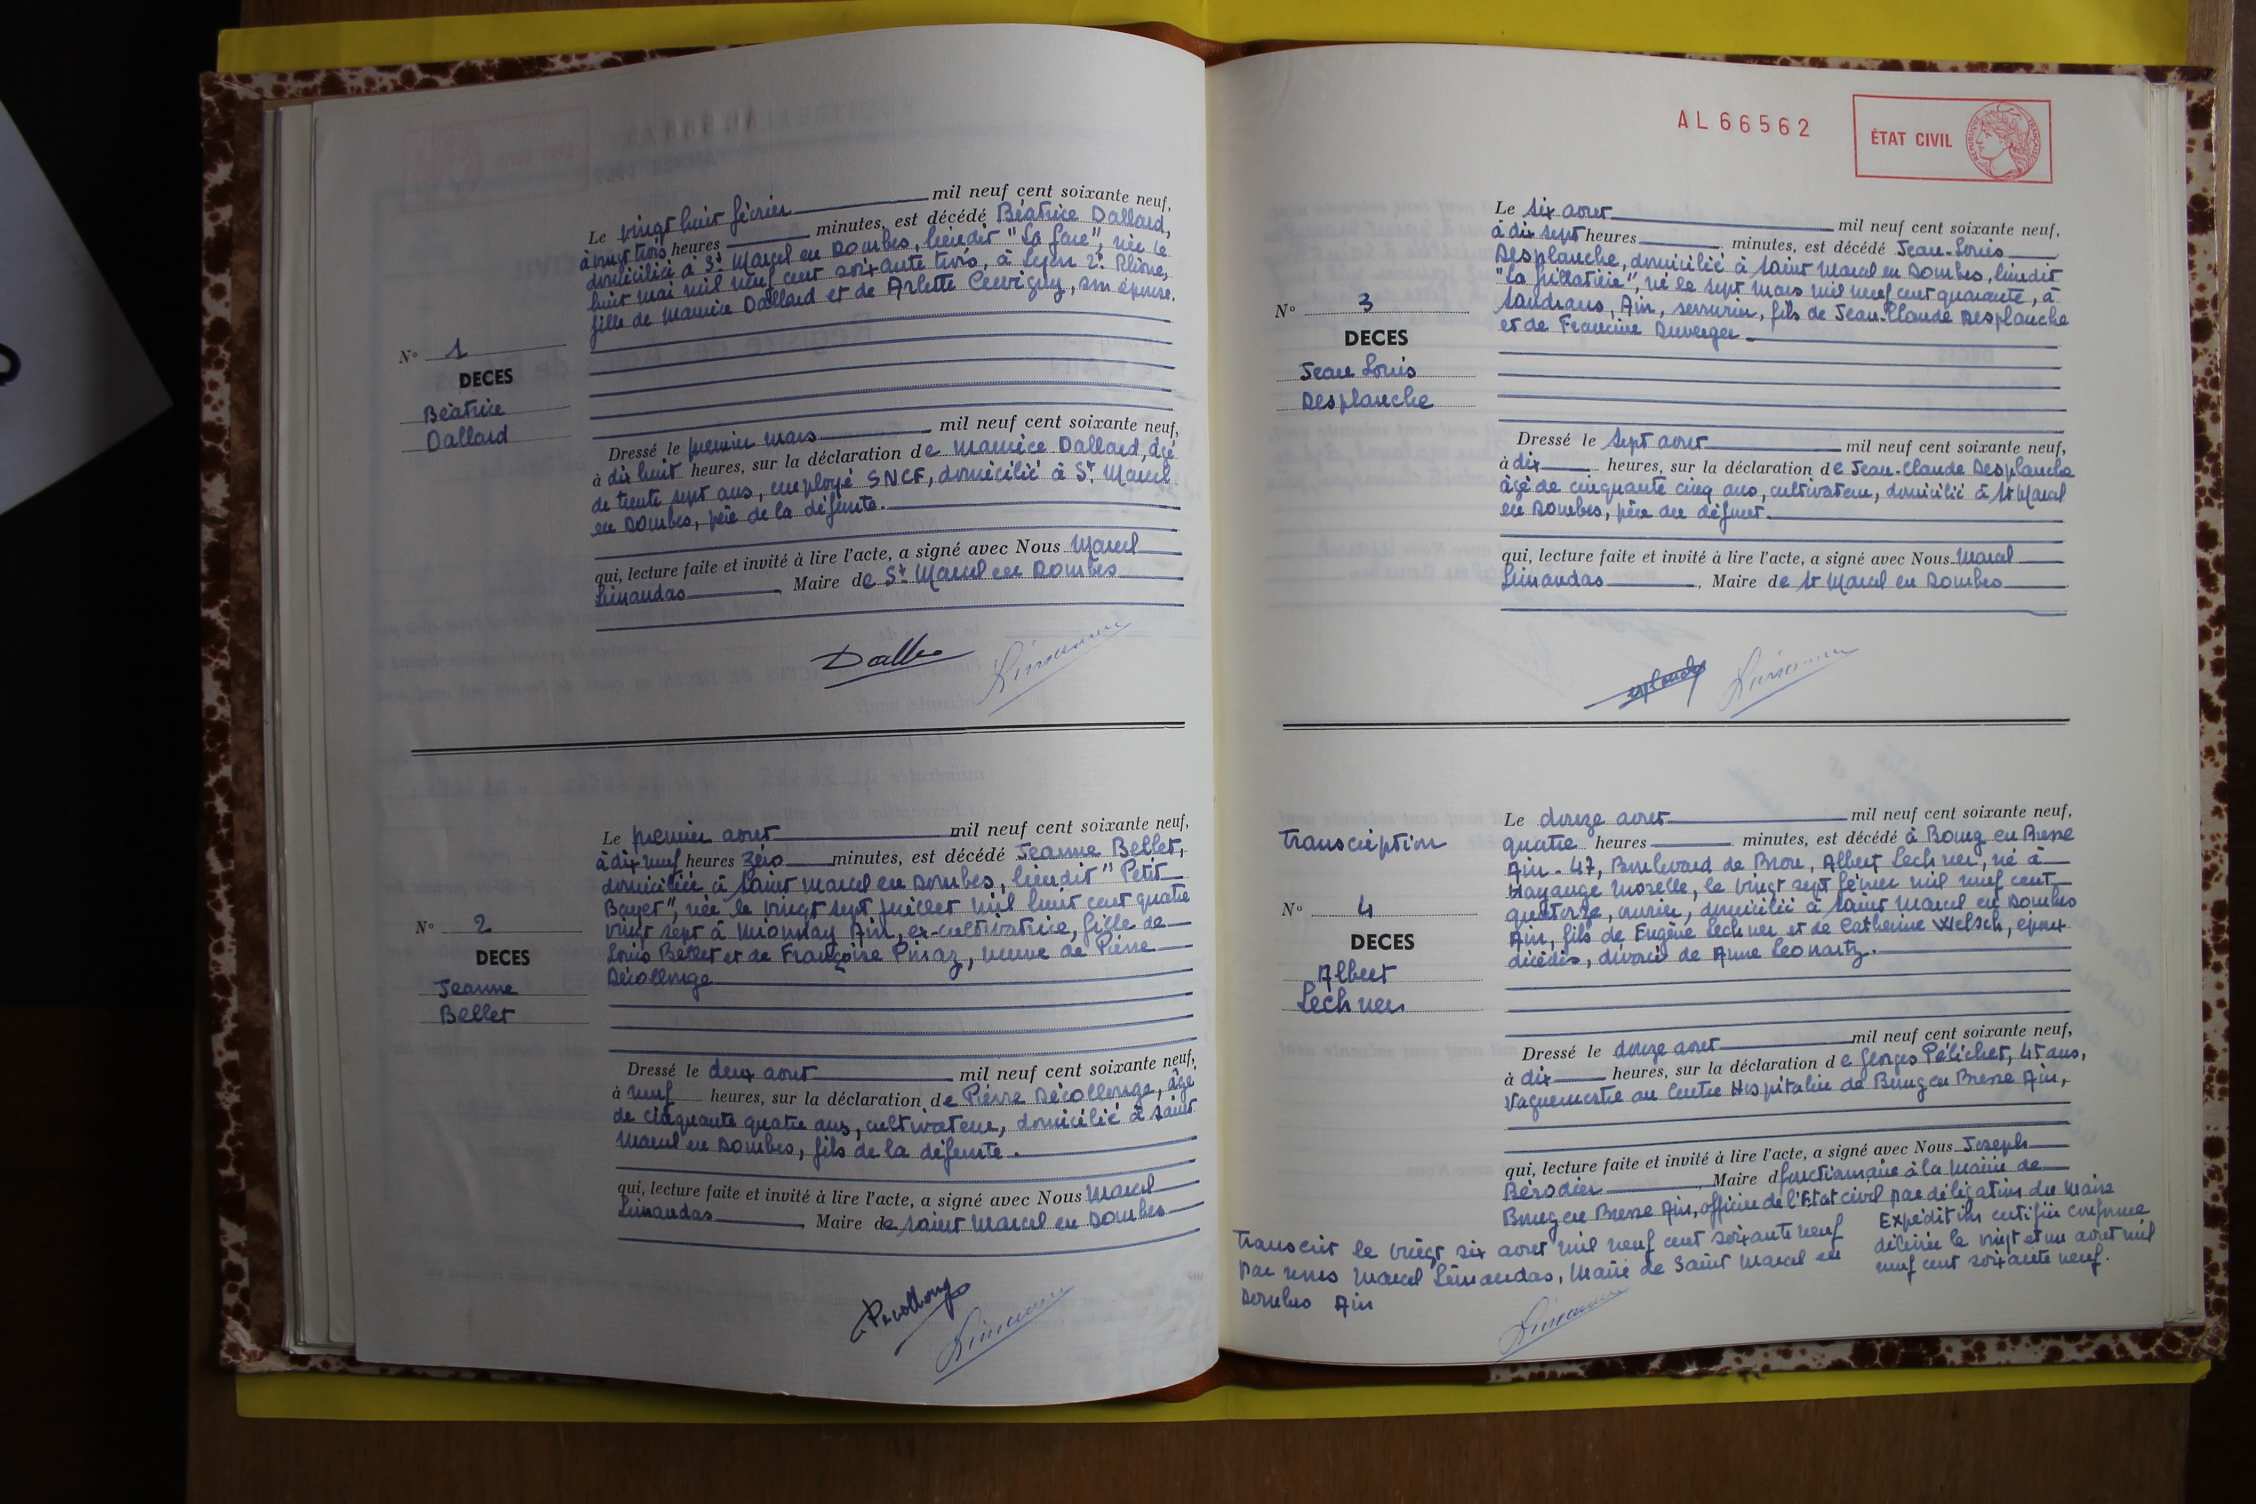 N° 1
DECES
Béatrice
Dallard
Le vingt huit février mil neuf cent soixante neuf,
à vingt trois heures minutes, est décédé Béatrice Dallard,
domiciliée à St Marcel en Dombes, lieudit "La Gare", née le
huit mai mil neuf cent soixante trois, à Lyon 2e Rhône,
fille de Maurice Dallard et de Arlette son épouse.
Dressé le premier mars mil neuf cent soixante neuf,
à dix huit heures, sur la déclaration de Maurice Dallard, âgé
de trente sept ans, employé SNCF, domicilié à St Marcel
en Dombes, père de la défunte.
qui, lecture faite et invité à lire l'acte, a signé avec Nous Marcel
Limandas, Maire de St Marcel en Dombes
N° 2
DECES
Jeanne
Bellet
Le premier aout mil neuf cent soixante neuf,
à dix neuf heures zéro minutes, est décédé Jeanne Bellet,
domiciliée à Saint Marcel en Dombes, lieudit "Petit
Bayet", née le vingt sept juillet mil huit cent quatre
vingt sept à Mionnay Ain, ex-cultivatrice, fille de
Louis Bellet et de Françoise Pinaz, veuve de Pierre
Décollonge
Dressé le deux aout mil neuf cent soixante neuf,
à neuf heures, sur la déclaration de Pierre Décollonge, âgé
de cinquante quatre ans, cultivateur, domicilié à Saint
Marcel en Dombes, fils de la défunte.
qui, lecture faite et invité à lire l'acte, a signé avec Nous Marcel
Limandas, Maire de Saint Marcel en Dombes
AL66562
ÉTAT CIVIL
N° 3
DECES
Jean Louis
Desplanche
Le six aout mil neuf cent soixante neuf,
à dix sept heures minutes, est décédé Jean-Louis
Desplanche, domicilié à Saint Marcel en Dombes, lieudit
né le sept mars mil neuf cent quarante, à
Sandrans, Ain, serrurier, fils de Jean-Claude Desplanche
et de Francine Duverger.
Dressé le sept aout mil neuf cent soixante neuf,
à dix heures, sur la déclaration de Jean-Claude Desplanche
âgé de cinquante cinq ans, cultivateur, domicilié à St Marcel
en Dombes, père du défunt.
qui, lecture faite et invité à lire l'acte, a signé avec Nous Marcel
Limandas, Maire de St Marcel en Dombes
Transcription
N° 4
DECES
Albert
Lechner
Le douze aout mil neuf cent soixante neuf,
quatre heures minutes, est décédé à Bourg en Bresse
Ain - 47, Boulevard de Brou, Albert Lechner, né à
Hayange Moselle, le vingt sept février mil neuf cent
quatorze, ouvrier, domicilié à Saint Marcel en Dombes
Ain, fils de Eugène Lechner et de Catherine Welsch, époux
décédés, divorcé de Anne Leonartz.
Dressé le douze aout mil neuf cent soixante neuf,
à dix heures, sur la déclaration de Georges Pélicher, 45 ans,
Vaguemestre au Centre Hospitalier de Bourg en Bresse Ain,
qui, lecture faite et invité à lire l'acte, a signé avec Nous Joseph
Bérodier, Maire d fonctionnaire à la Mairie de
Bourg en Bresse Ain, officier de l'Etat civil par délégation du Maire
Expédition certifiée conforme
délivrée le vingt et un aout mil
neuf cent soixante neuf.
Transcrit le vingt six aout mil neuf cent soixante neuf
par nous Marcel Limandas, Maire de Saint Marcel en
Dombes Ain